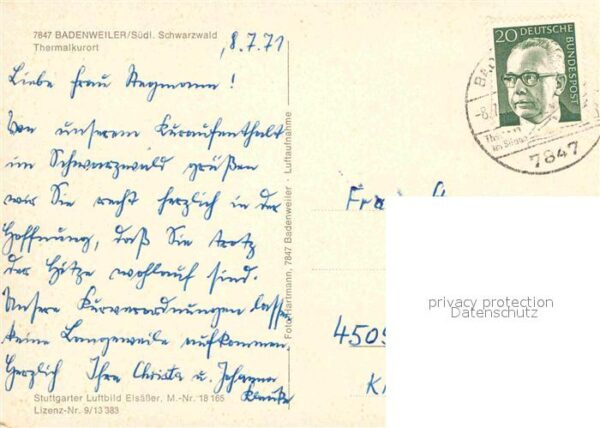 7847 BADENWEILER/Südl. Schwarzwald
Thermalkurort
8.7.71
Liebe Frau Stegmann!
Von unserem Kuraufenthalt
im Schwarzwald grüßen
wir Sie recht herzlich in der
Hoffnung, daß Sie trotz
der Hitze wohlauf sind.
Unsere Kurverordnungen lassen
keine Langeweile aufkommen.
Herzlich Ihre Christa u. Johanna
Stuttgarter Luftbild Elsäßer, M.-Nr. 18 165
Lizenz-Nr. 9/13 383
Foto-Hartmann, 7847 Badenweiler · Luftaufnahme
20 DEUTSCHE
BUNDESPOST
7847
Frau
4509
privacy protection
Datenschutz